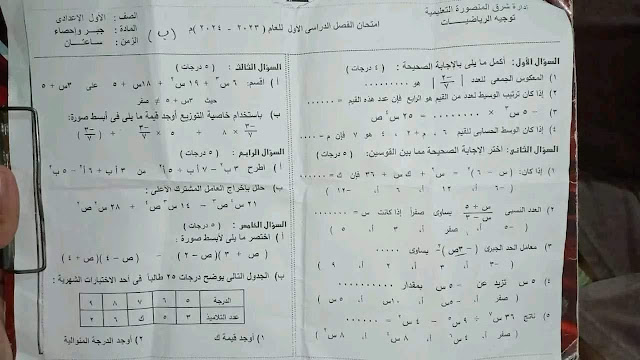 إدارة شرق المنصورة التعليمية
توجيه الرياضيات
امتحان الفصل الدراسى الأول للعام (٢٠٢٣ - ٢٠٢٤) م
( ب )
الصف : الأول الإعدادى
المادة : جبر وإحصاء
الزمن : ساعتان
السؤال الأول: أكمل ما يلى بالإجابة الصحيحة : ( ٤ درجات )
١) المعكوس الجمعى للعدد | -٢/٧ | هو ..........
٢) إذا كان ترتيب الوسيط لعدد من القيم هو الرابع فإن عدد هذه القيم = .......
٣) - ٥ س٢ × .......... = ٢٥ س٣ ص
٤) إذا كان الوسط الحسابى للقيم ٦ ، م + ٢ ، ٤ هو ٧ فإن م = .......
السؤال الثانى: اختر الإجابة الصحيحة مما بين القوسين: ( ٥ درجات )
١) إذا كان: ( س - ٦ )٢ = س٢ + ك س + ٣٦ فإن ك = .......
( -٦ أ، ١٢ أ، ٦ أ، -١٢ )
٢) العدد النسبى س + ٥ / س - ٣ يساوى صفراً إذا كانت س = ........
( -٥ أ، صفر أ، ٣ أ، ٥ )
٣) معامل الحد الجبرى ( -٣ص )٢ يساوى .......
( -٣ أ، ٣ أ، ٢ أ، ٩ )
٤) ٥ س تزيد عن - ٥ س بمقدار ..........
( صفر أ، - س أ، ١٠ س أ، ٥ س )
٥) ناتج ٣٦ س٢ ÷ ٩ س٢ - ٤ س٢ = .......
( صفر أ، ٤ س٢ أ، ٨ أ، ٨ س٢ )
السؤال الثالث : ( ٥ درجات )
أ ) أقسم: ٦ س٣ + ١٩ س٢ + ١٨ س + ٥ على ٣ س + ٥
حيث ٣س + ٥ ≠ صفر
ب) باستخدام خاصية التوزيع أوجد قيمة ما يلى فى أبسط صورة:
-٣/٧ × ٨ + ٥ × -٣/٧ + ( -٣/٧ )
السؤال الرابع : ( ٥ درجات )
أ ) اطرح ٣ ب٢ - ٧ أ ب + ٥ أ٢ من ٣ أ ب + ٦ أ٢ - ٥ ب٢
ب) حلل بإخراج العامل المشترك الأعلى :
السؤال الخامس : ( ٥ درجات )
أ ) اختصر ما يلى لأبسط صورة :
( ص + ٣ ) ( ص - ٢ ) - ( ص - ٤ ) ( ص + ٤ )
ب) الجدول التالى يوضح درجات ٢٥ طالبا فى أحد الاختبارات الشهرية :
الدرجة ٥ ٦ ٧ ٨ ٩
عدد التلاميذ ٣ ٥ ك ٦ ٢
١) أوجد قيمة ك ٢) أوجد الدرجة المنوالية